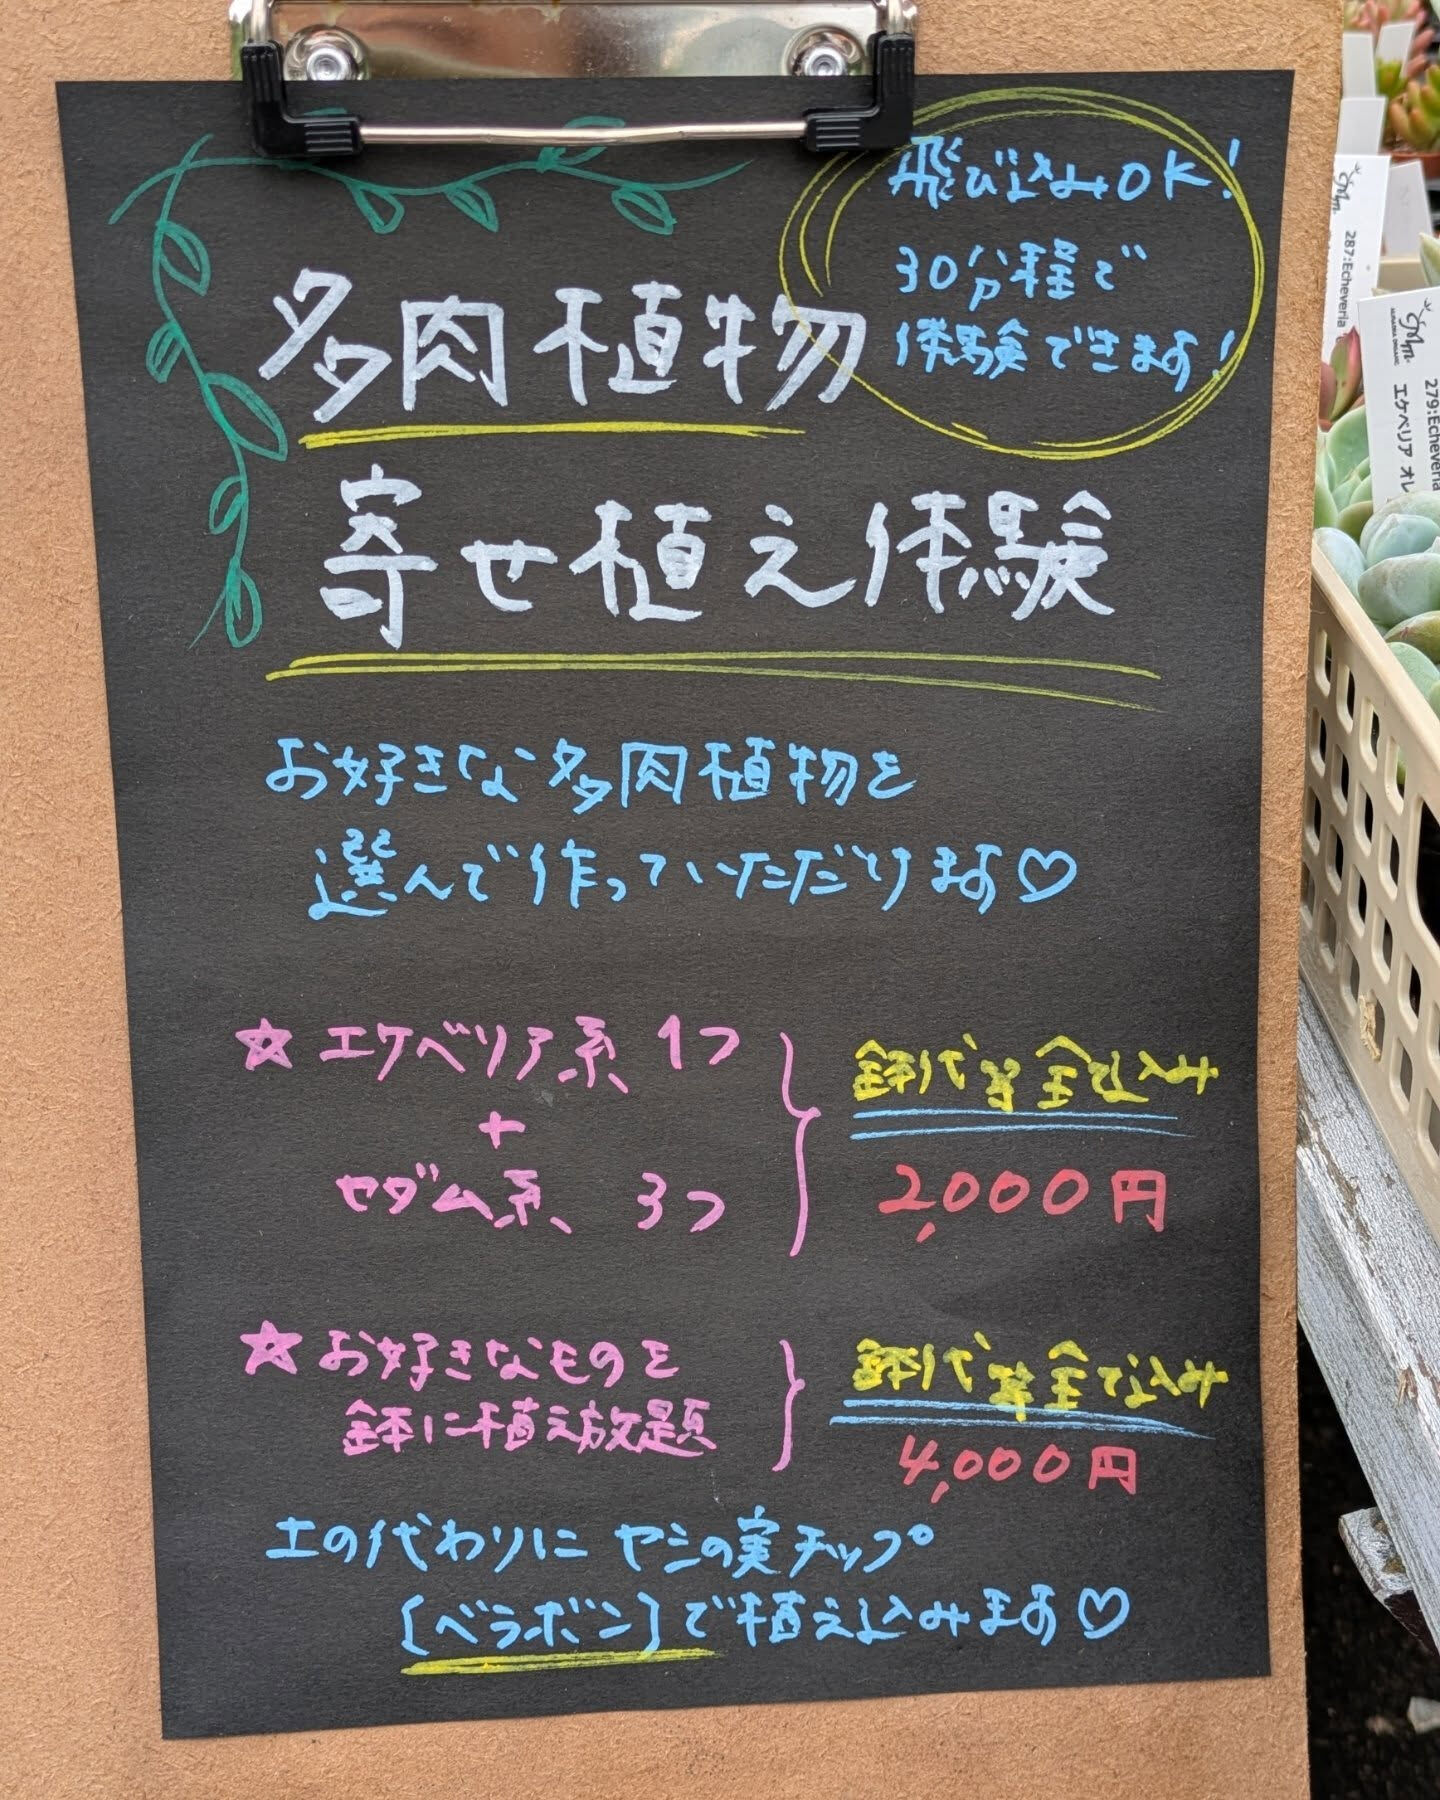 飛び込みOK!
30分程で
体験できます!
多肉植物
寄せ植え体験
お好きな多肉植物を
選んで作っていただけます♡
☆エケベリア系 1つ
+
セダム系 3つ
鉢代等全て込み
2,000円
☆お好きなものを
鉢に植え放題
鉢代等全て込み
4,000円
土の代わりにヤシの実チップ
[ベラボン]で植え込みます♡
287:Echeveria
279:Echeveria
エケベリア オレ